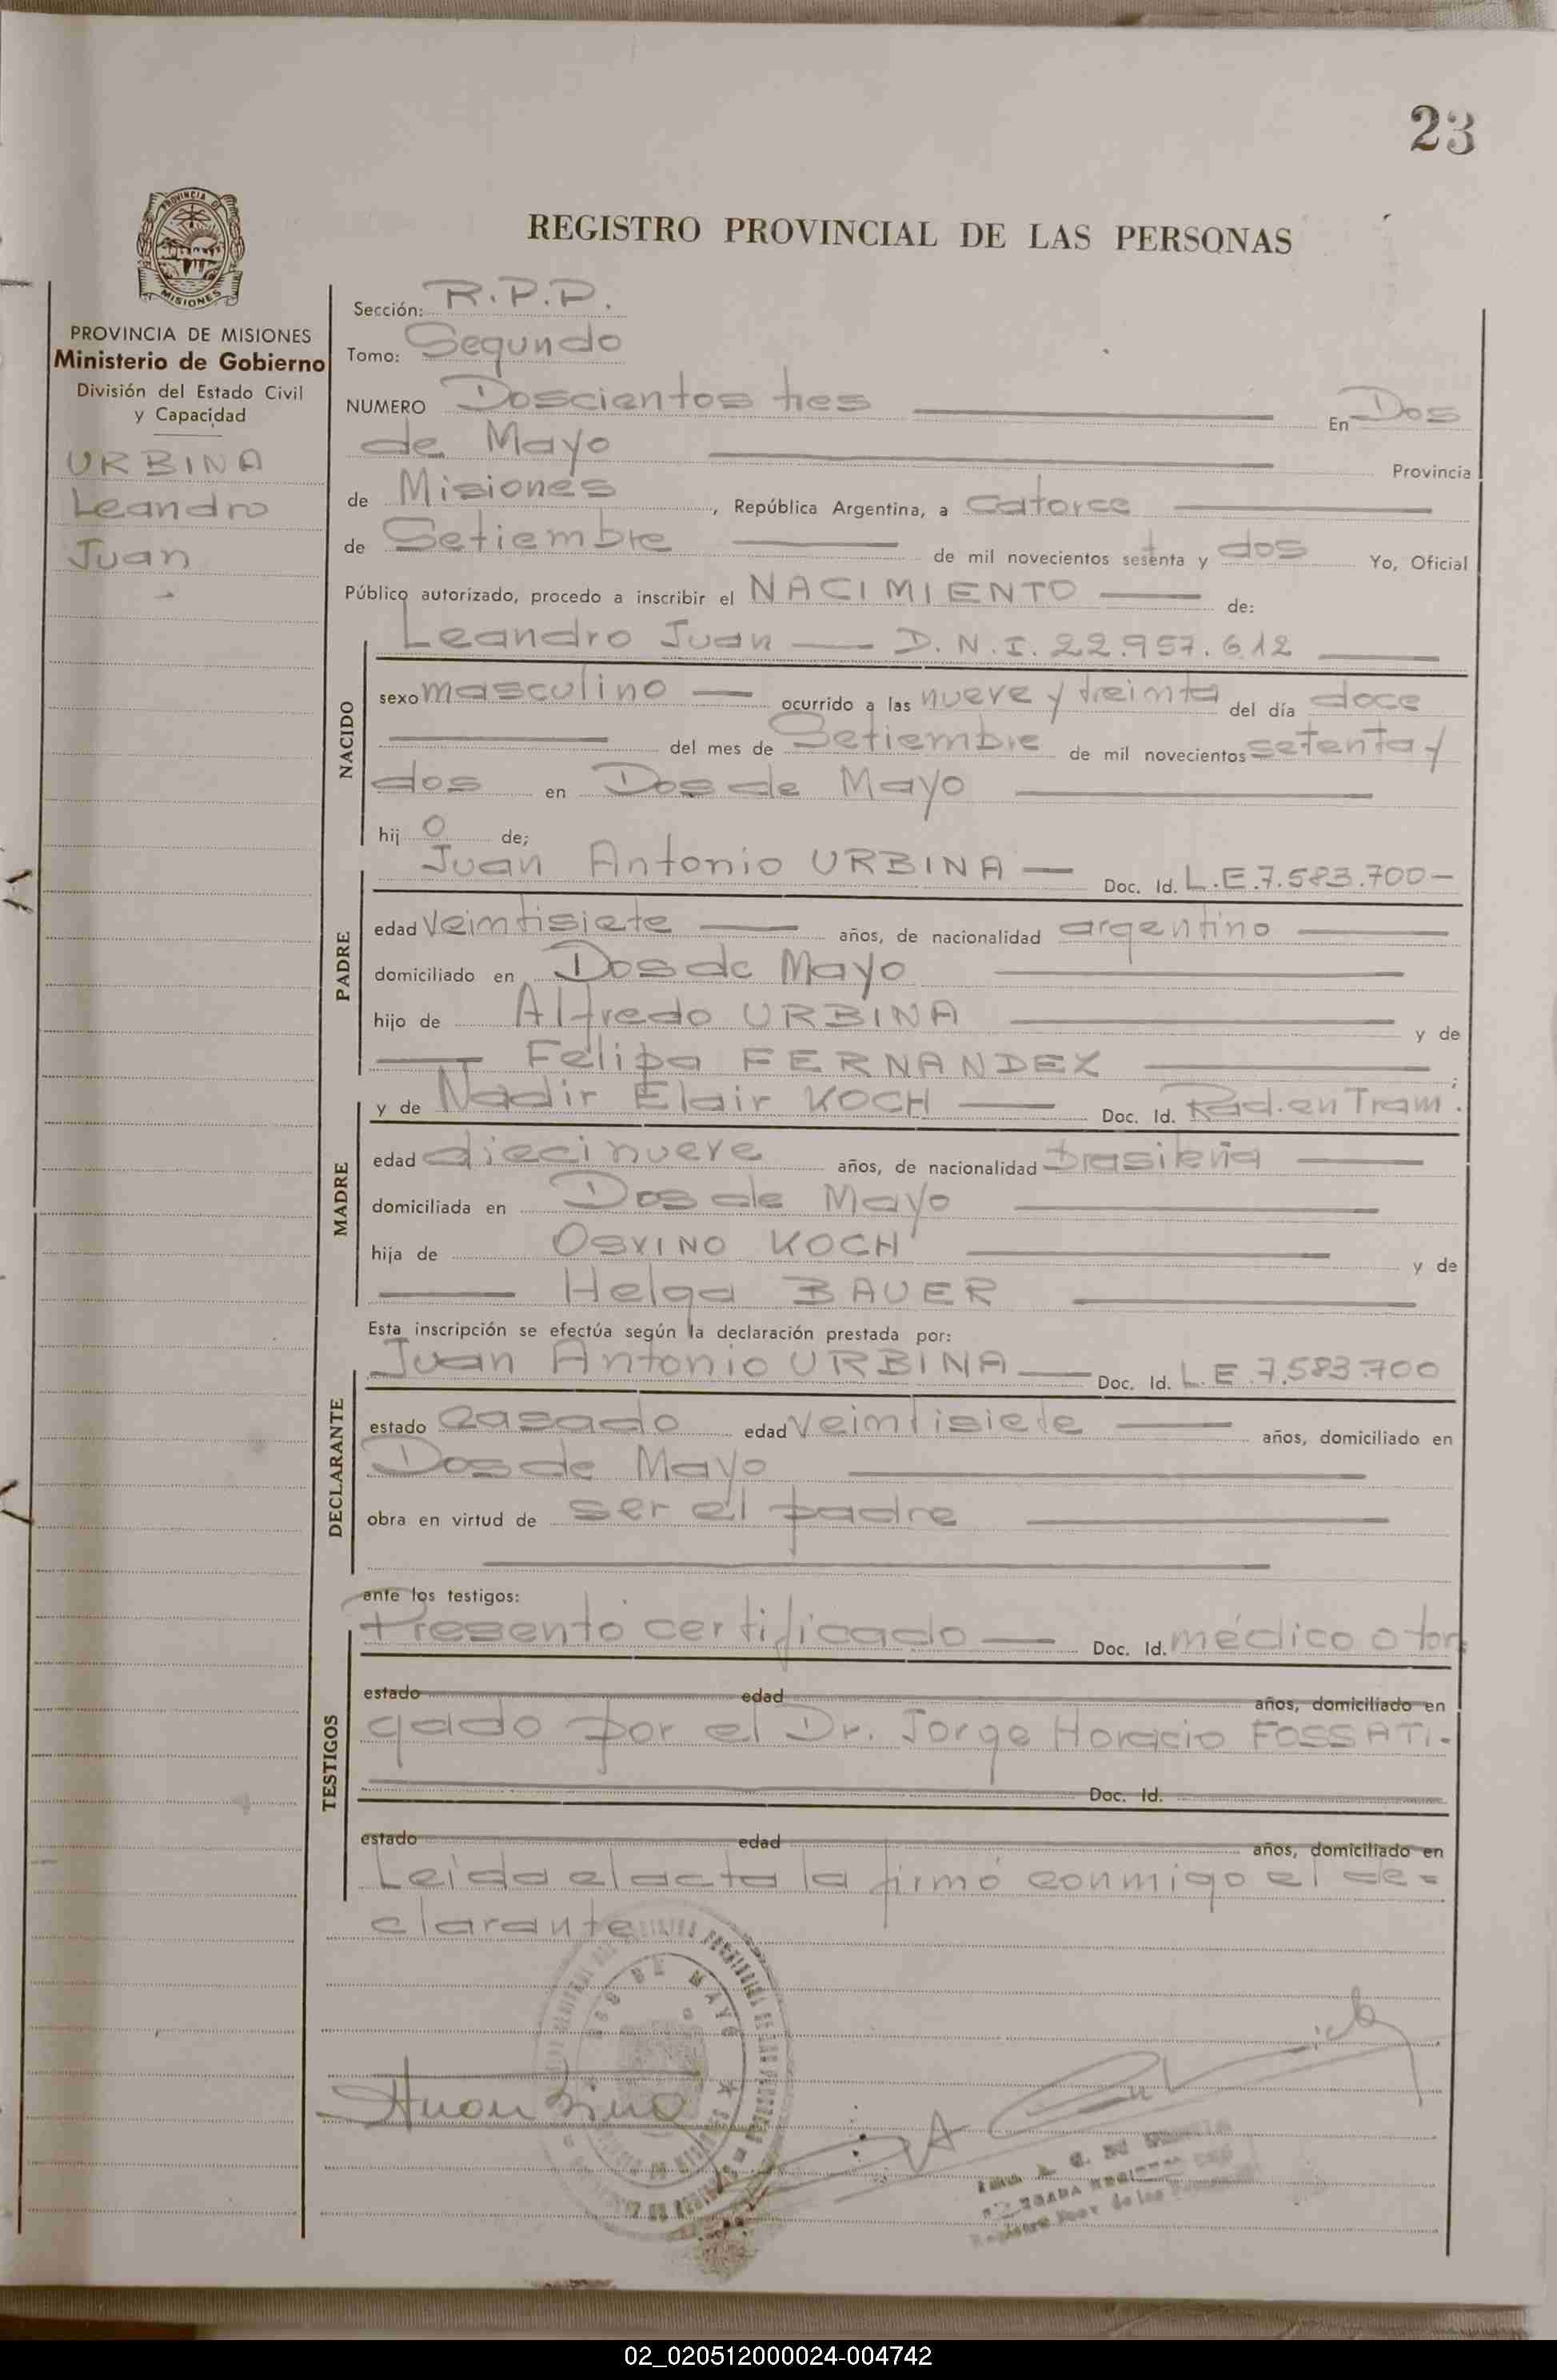 23
REGISTRO PROVINCIAL DE LAS PERSONAS
PROVINCIA DE MISIONES
Ministerio de Gobierno
División del Estado Civil
y Capacidad
URBINA
Leandro
Juan
Sección: R.P.P.
Tomo: Segundo
NUMERO Doscientos tres En Dos
de Mayo Provincia
de Misiones, República Argentina, a catorce
de Setiembre de mil novecientos setenta y dos Yo, Oficial
Público autorizado, procedo a inscribir el NACIMIENTO de:
Leandro Juan — D.N.I. 22.957.612
NACIDO
sexo masculino — ocurrido a las nueve y treinta del día doce
del mes de Setiembre de mil novecientos setenta y
dos en Dos de Mayo
hijo de;
Juan Antonio URBINA — Doc. Id. L.E.7.583.700-
PADRE
edad veintisiete años, de nacionalidad argentino
domiciliado en Dos de Mayo
hijo de Alfredo URBINA y de
Felipa FERNANDEZ ;
y de Nadir Elair KOCH — Doc. Id. Rad. en Tram.
MADRE
edad diecinueve años, de nacionalidad brasileña
domiciliada en Dos de Mayo
hija de OSVINO KOCH y de
Helga BAUER
Esta inscripción se efectúa según la declaración prestada por:
Juan Antonio URBINA — Doc. Id. L.E.7.583.700
DECLARANTE
estado casado edad veintisiete años, domiciliado en
Dos de Mayo
obra en virtud de ser el padre
ante los testigos:
Presentó certificado — Doc. Id. médico otor
TESTIGOS
estado edad años, domiciliado en
gado por el Dr. Jorge Horacio FOSSATI.
Doc. Id.
estado edad años, domiciliado en
Leída el acta la firmó conmigo el de=
clarante
DOS DE MAYO
02_020512000024-004742